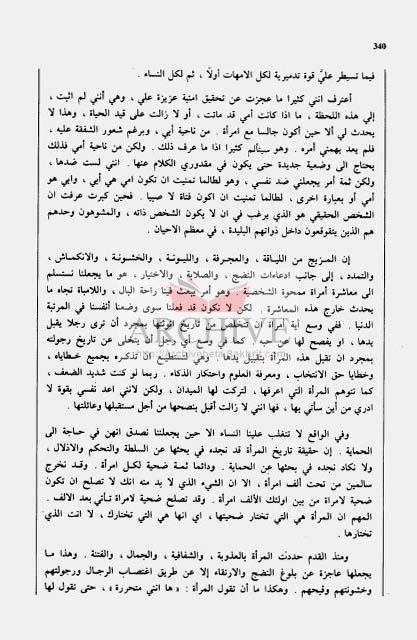 340
فيما تسيطر عليّ قوة تدميرية لكل الامهات أولاً ، ثم لكل النساء .
أعترف انني كثيرا ما عجزت عن تحقيق امنية عزيزة علي ، وهي أنني لم اثبت ،
إلي هذه اللحظة ، ما اذا كانت أمي قد ماتت ، أو لا زالت على قيد الحياة ، وهذا لا
يحدث لي ألا حين أكون جالسا مع امرأة . من ناحية أبي ، وبرغم شعور الشفقة عليه ،
فلم يعد يهمني أمره . وهو سيتألم كثيرا اذا ما عرف ذلك . ولكن من ناحية أمي فذلك
يحتاج الى وضعية جديدة حتى يكون في مقدوري الكلام عنها . انني لست ضدها ،
ولكن ثمة أمر يجعلني ضد نفسي ، وهو لطالما تمنيت ان تكون امي هي أبي ، وابي هو
أمي أو بعبارة اخرى ، لطالما تمنيت ان اكون فتاة لا صبيا . فحين كبرت عرفت ان
الشخص الحقيقي هو الذي يرغب في ان لا يكون الشخص ذاته ، والمشوهون وحدهم
هم الذين يتقوقعون داخل ذواتهم البليدة ، في معظم الاحيان .
إن المزيج من اللياقة ، والعجرفة ، والليونة ، والخشونة ، والانكماش ،
والتمدد ، إلى جانب ادعاءات النضج ، والصلابة ، والاختيار ، هو ما يجعلنا نستسلم
الى معاشرة أمرأة ممحوة الشخصية . وهو أمر يبعث فينا راحة البال ، واللامباة تجاه ما
يحدث خارج هذه المعاشرة . لكن لا نكون قد فعلنا سوى وضعنا أنفسنا في المرتبة
الدنيا . ففي وسع أية امرأة ان تتخلص من تاريخ انوثتها بمجرد أن ترى رجلا يقبل
يدها ، او يفصح لها عن حب . كما في وسع أي رجل أن يتخلى عن تاريخ رجولته
بمجرد ان تقبل هذه المرأة بتقبيل يدها . وهي تستطيع ان تذكره بجميع خطاياه ،
وخطايا حق الانتخاب ، ومعرفة العلوم واحتكار الذكاء . ربما لو كنت شديد الضعف ،
كما تتوهم المرأة التي اعرفها ، لتركت لها الميدان ، ولكن لانني اعد نفسي بقوة لا
ادري من أين سأتي بها ، فها انني لا زالت أقبل بنصحها من أجل مستقبلها وعائلتها .
وفي الواقع لا تتغلب علينا النساء الا حين يجعلننا نصدق انهن في حاجة الى
الحماية . إن حقيقة تاريخ المرأة قد نجده في بحثها عن السلطة والتحكم والاذلال ،
ولا نكاد نجده في بحثها عن الحماية . ودائما ثمة ضحية لكل امرأة . وقد نخرج
سالمين من تحت ألف امرأة ، الا ان الشيء الذي لا بد منه انك لا تصلح ان تكون
ضحية لامراة من بين اولئك الألف امرأة . وقد تصلح ضحية لامراة تأتي بعد الالف .
المهم ان المرأة هي التي تختار ضحيتها ، اي انها هي التي تختارك ، لا انت الذي
تختارها .
ومنذ القدم حددت المرأة بالعذوبة ، والشفافية ، والجمال ، والفتنة . وهذا ما
يجعلها عاجزة عن بلوغ النضج والارتقاء إلا عن طريق اغتصاب الرجال ورجولتهم
وخشونتهم وقبحهم . وهكذا ما أن تقول المرأة : « ها انني متحررة » ، حتى نقول لها
ARCHIVE